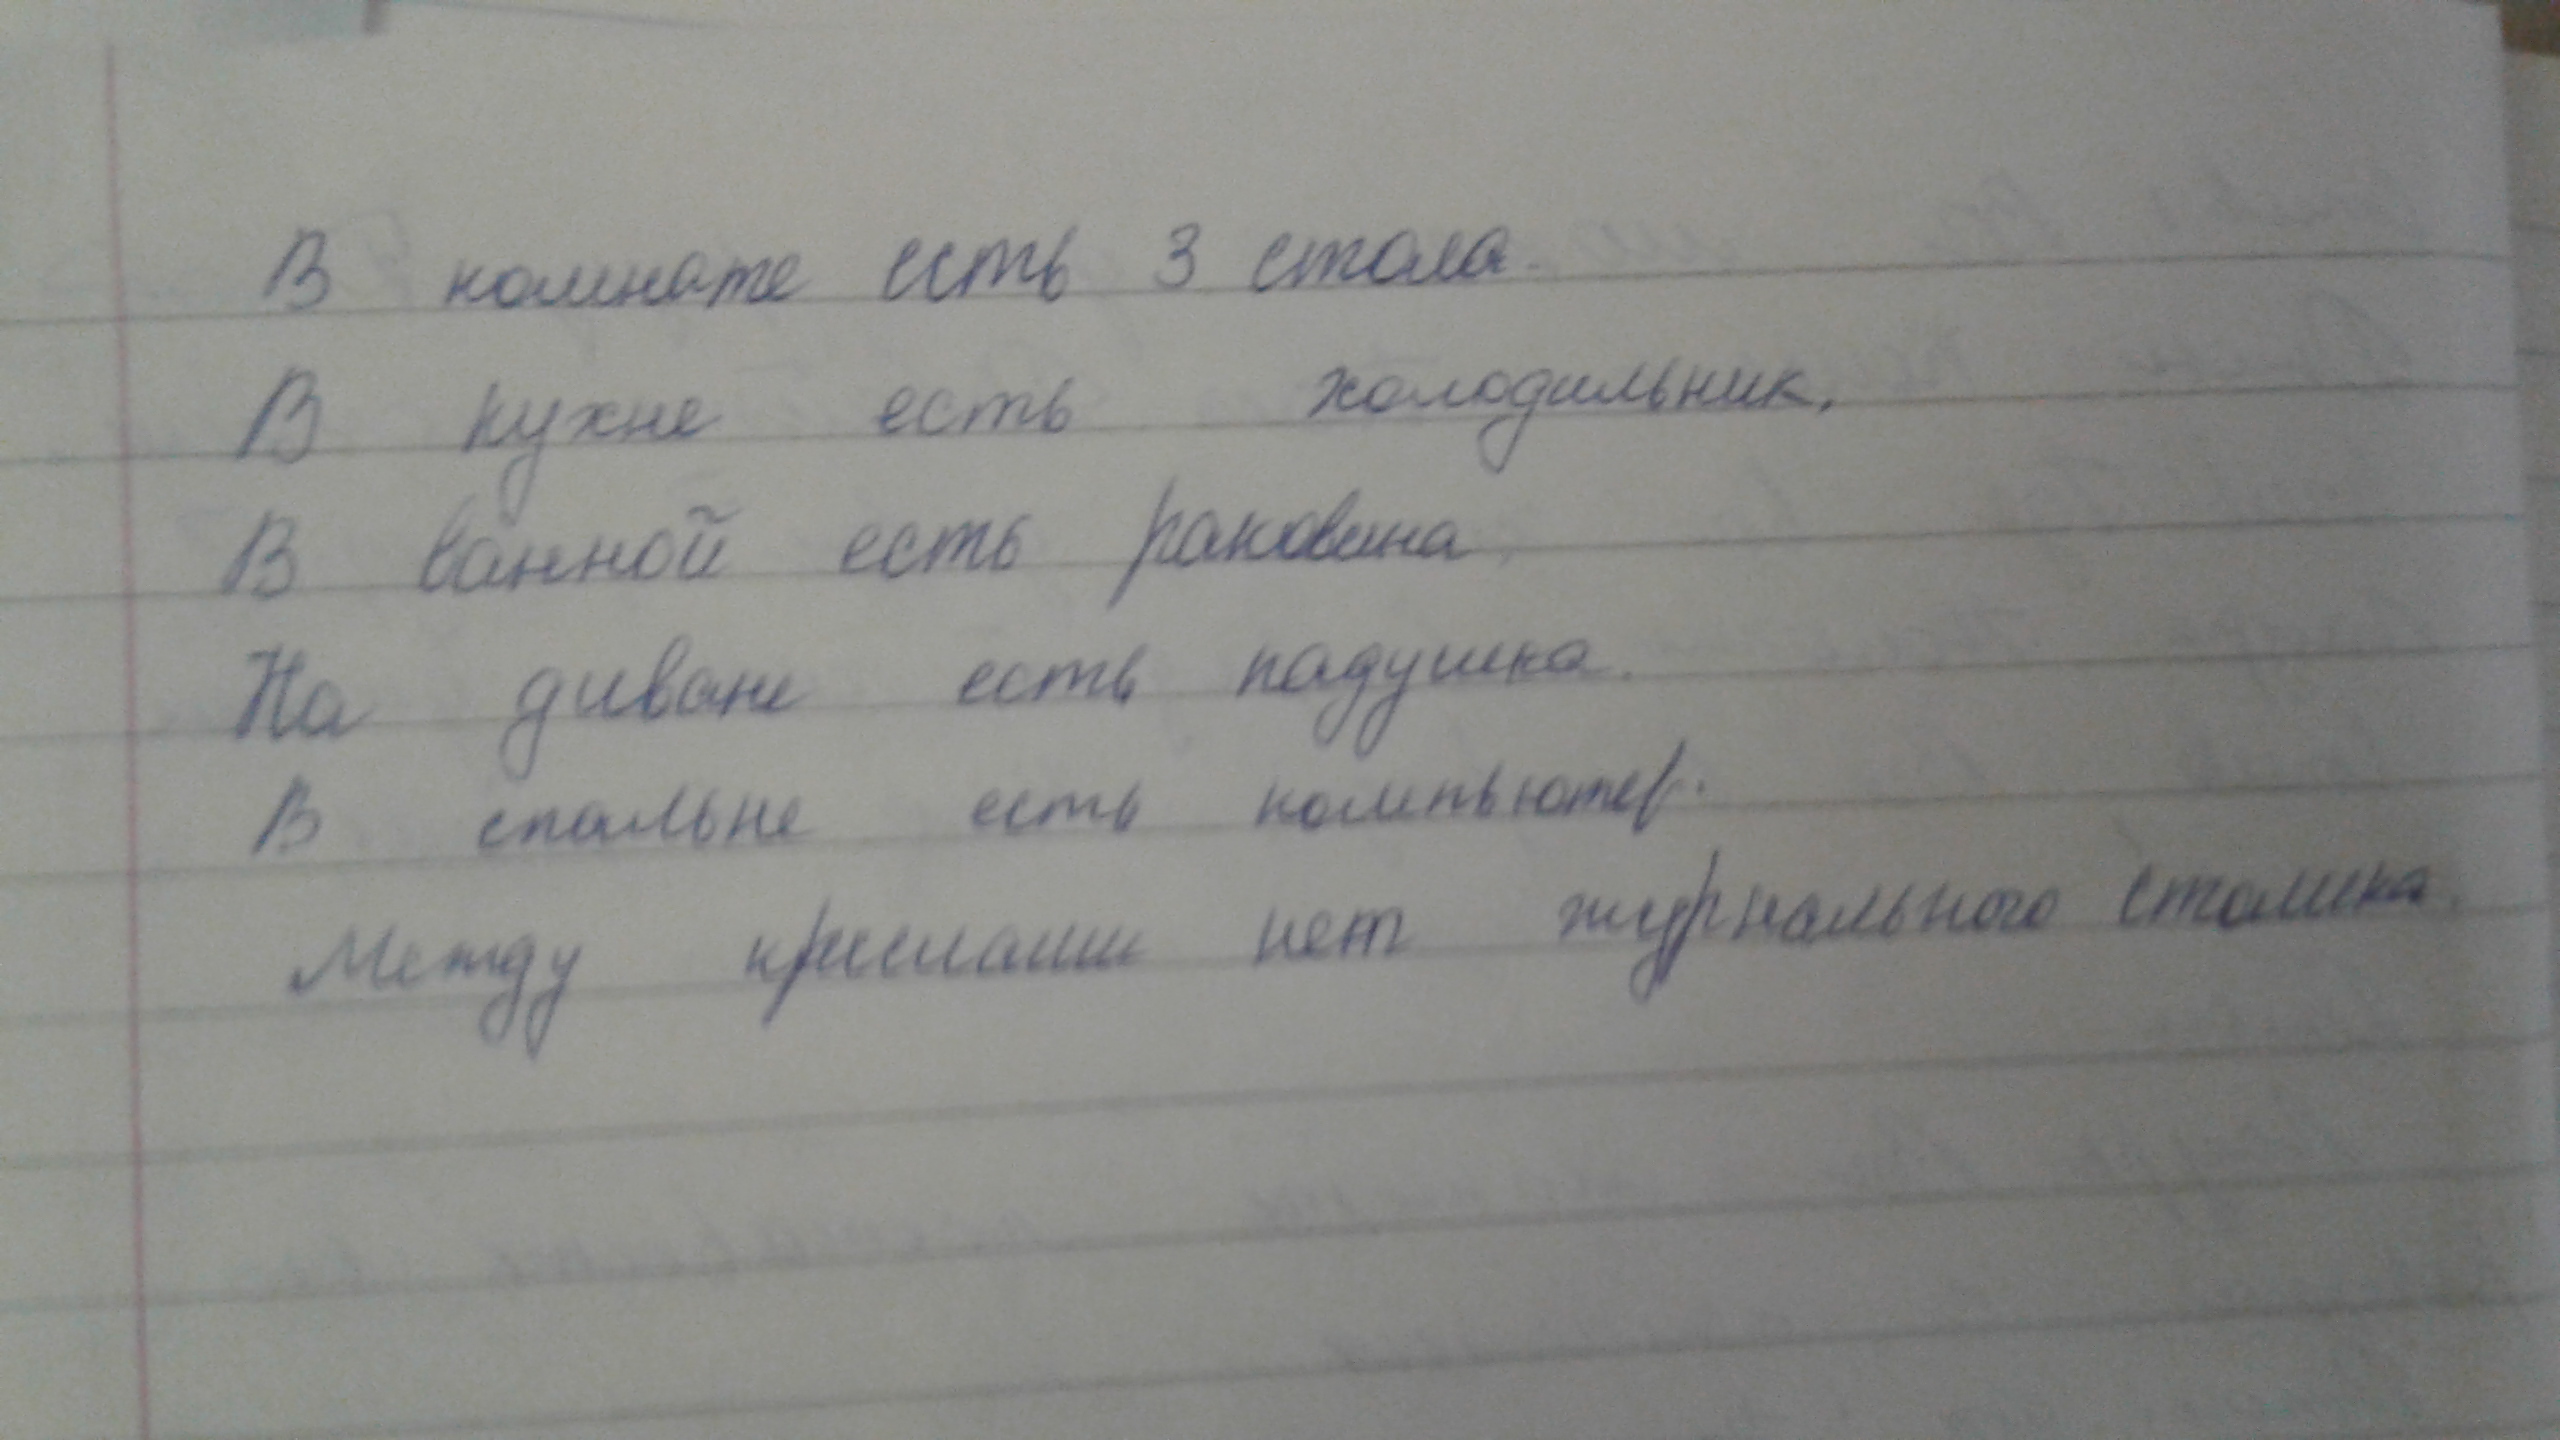 В комнате есть 3 стола.
В кухне есть холодильник.
В ванной есть раковина.
На диване есть падушка.
В спальне есть компьютер.
Между крислами нет журнального столика.